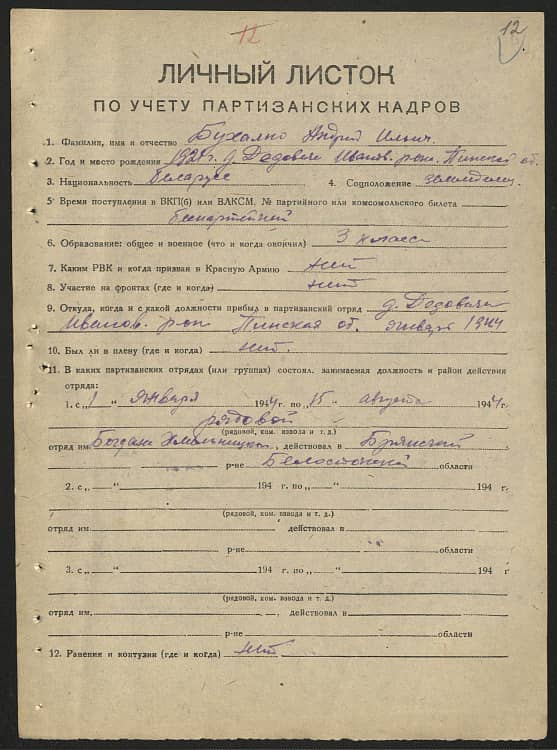 12
12
ЛИЧНЫЙ ЛИСТОК
ПО УЧЕТУ ПАРТИЗАНСКИХ КАДРОВ
1. Фамилия, имя и отчество Бухалко Андрей Ильич.
2. Год и место рождения г. д. Дедовичи Иванов. рон. Пинской об.
3. Национальность беларусс 4. Соцположение
5. Время поступления в ВКП(б) или ВЛКСМ, № партийного или комсомольского билета
беспартейный
6. Образование: общее и военное (что и когда окончил) 3 класса
7. Каким РВК и когда призван в Красную Армию нет
8. Участие на фронтах (где и когда) нет
9. Откуда, когда и с какой должности прибыл в партизанский отряд д. Дедовичи
Иванов. рон Пинская об. январь 1944
10. Был ли в плену (где и когда) нет.
11. В каких партизанских отрядах (или группах) состоял, занимаемая должность и район действия
отряда:
1. с „1" января 1944 г. по „15" августа 1944 г.
рядовой
(рядовой, ком. взвода и т. д.)
отряд им. Богдана Хмельницкого, действовал в Брянский
р-не Белостокской области
2. с „ " 194 г. по „ " 194 г.
(рядовой, ком. взвода и т. д.)
отряд им. действовал в
р-не области
3. с „ " 194 г. по „ " 194 г.
(рядовой, ком. взвода и т. д.)
отряд им. действовал в
р-не области
12. Ранения и контузии (где и когда) нет